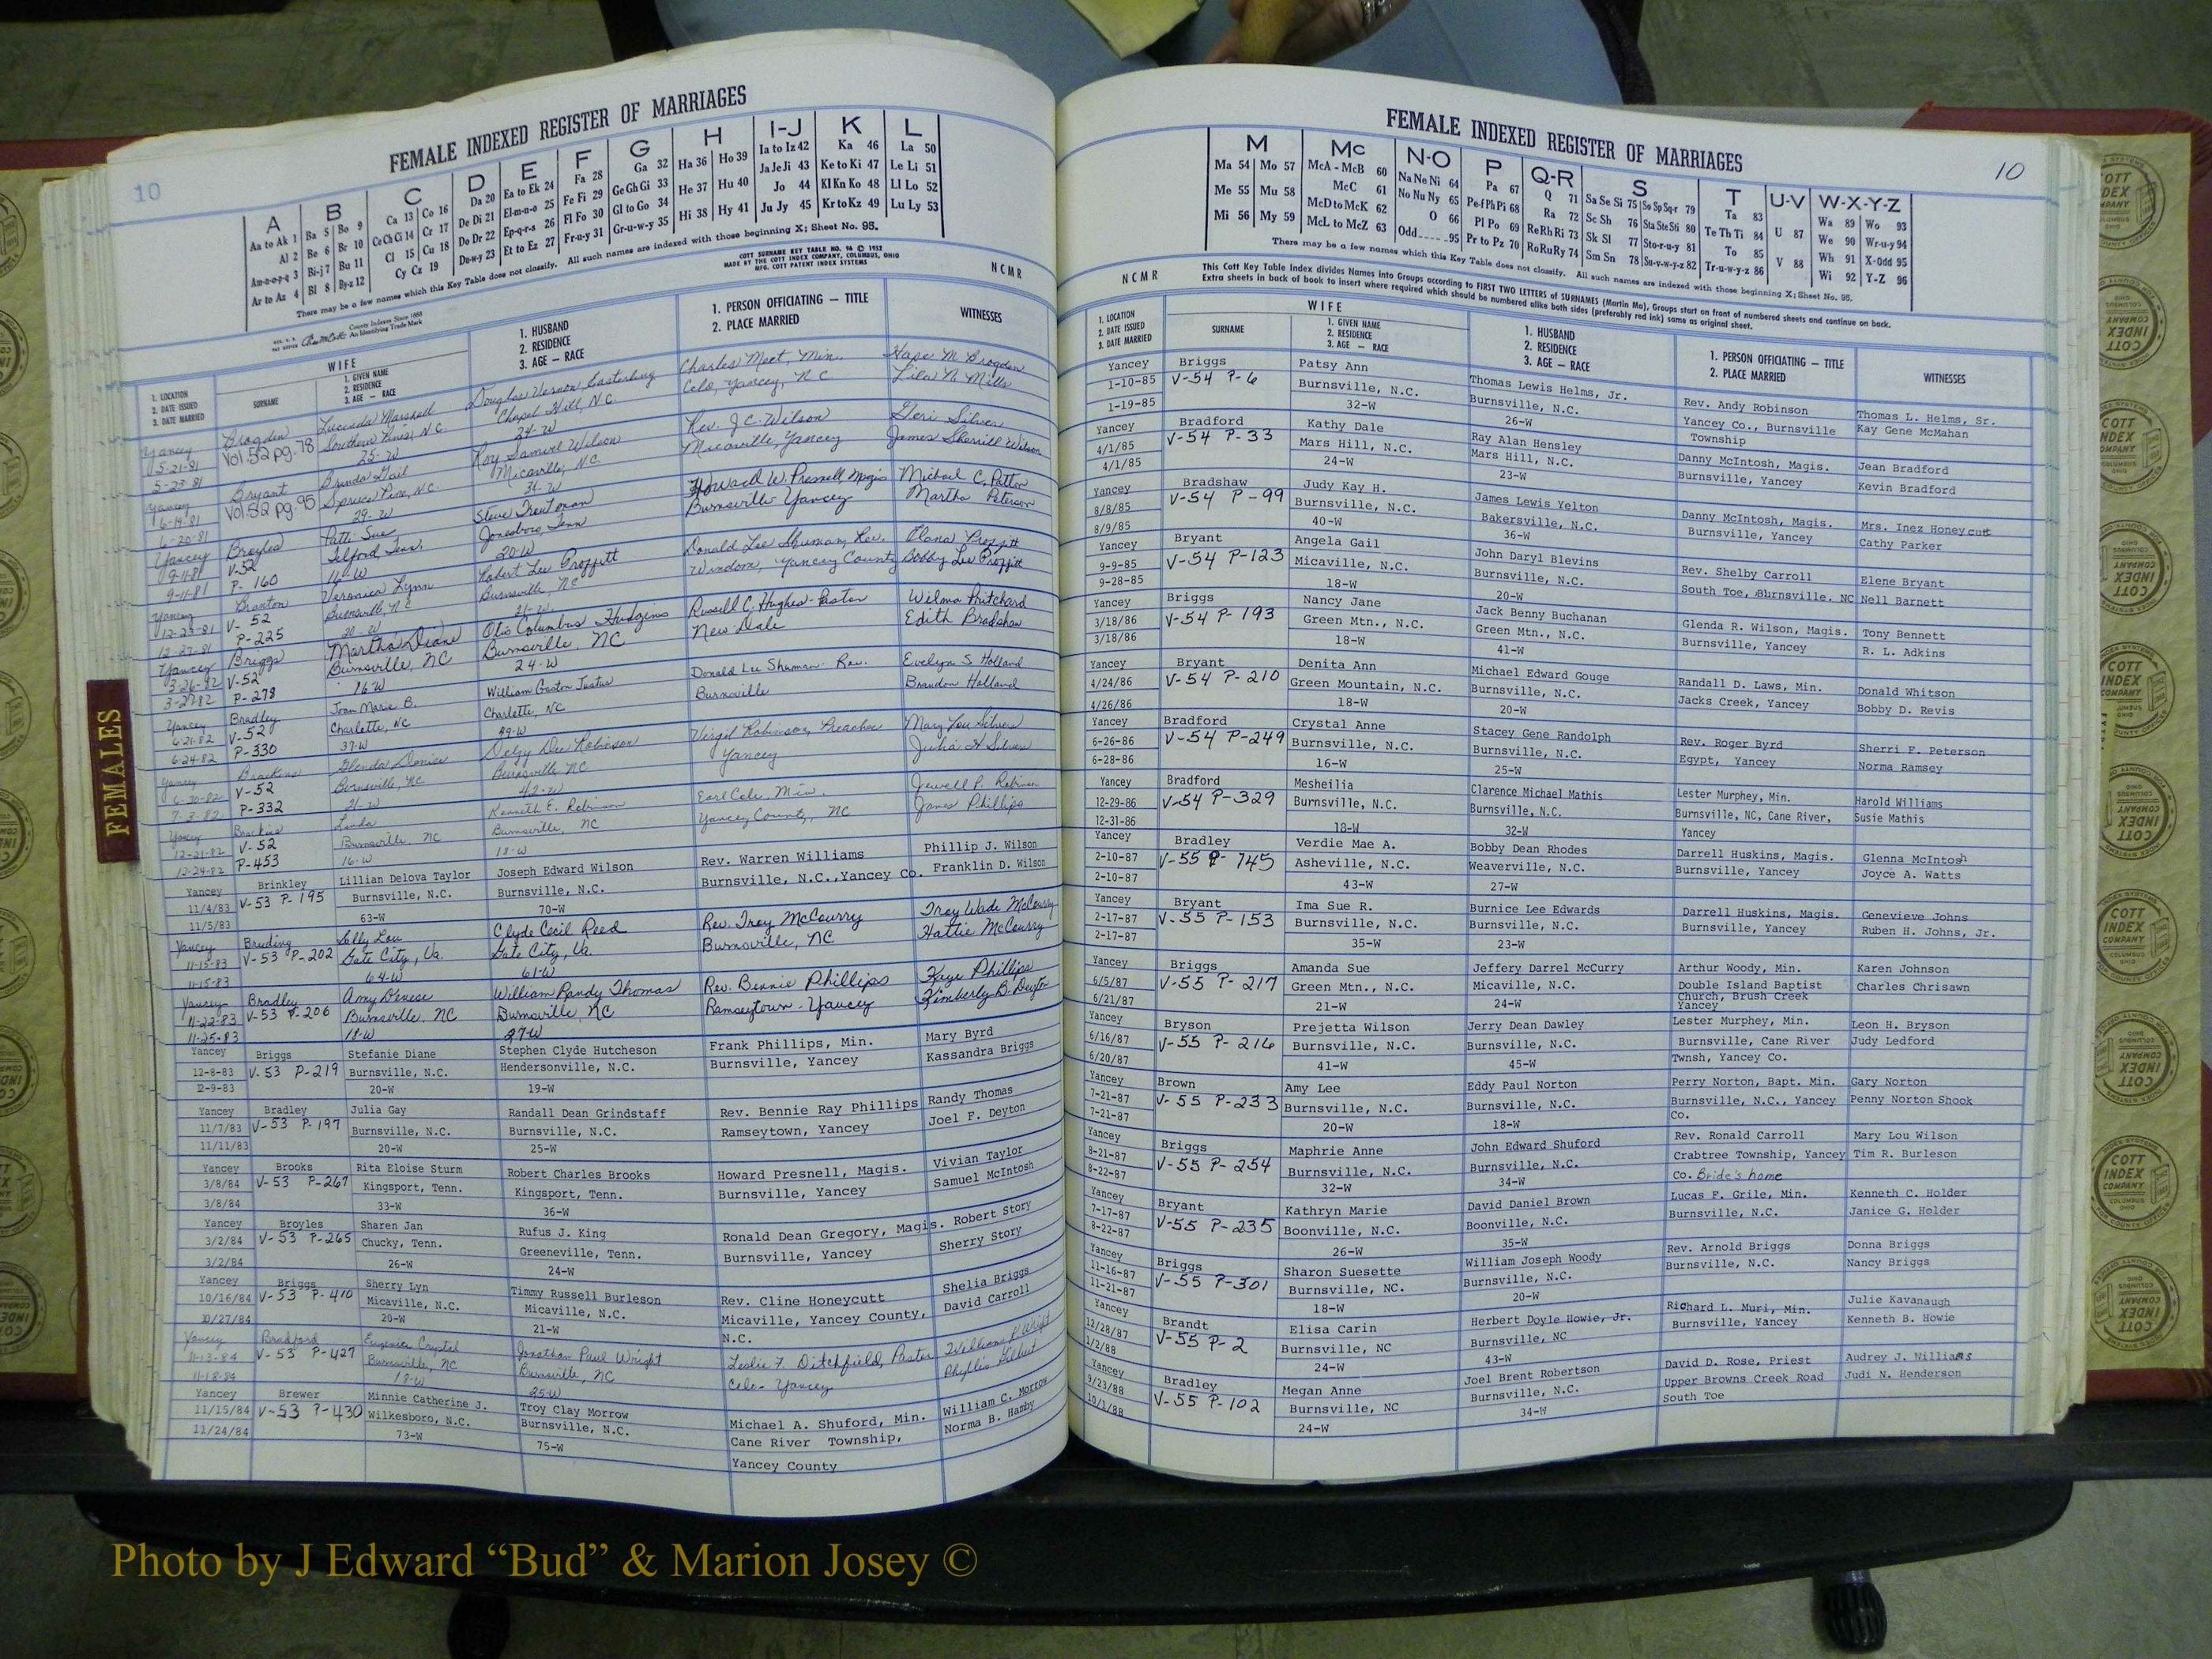 10
FEMALE INDEXED REGISTER OF MARRIAGES
A B C D E F G H I-J K L
Aa to Ak 1 Ba 5 Bo 9 Ca 13 Co 16 Da 20 Ea to Ek 24 Fa 28 Ga 32 Ha 36 Ho 39 Ia to Iz 42 Ka 46 La 50
Al 2 Be 6 Br 10 Ce Ch Ci 14 Cr 17 De Di 21 El-m-n-o 25 Fe Fi 29 Ge Gh Gi 33 He 37 Hu 40 Ja Je Ji 43 Ke to Ki 47 Le Li 51
Am-n-o-p-q 3 Bi-j 7 Bu 11 Cl 15 Cu 18 Do Dr 22 Ep-q-r-s 26 Fl Fo 30 Gl to Go 34 Hi 38 Hy 41 Jo 44 Kl Kn Ko 48 Ll Lo 52
Ar to Az 4 Bl 8 By-z 12 Cy Cz 19 Du-w-y 23 Et to Ez 27 Fr-u-y 31 Gr-u-w-y 35 Ju Jy 45 Kr to Kz 49 Lu Ly 53
There may be a few names which this Key Table does not classify. All such names are indexed with those beginning X; Sheet No. 95.
COTT SURNAME KEY TABLE NO. 96 © 1952
MADE BY THE COTT INDEX COMPANY, COLUMBUS, OHIO
MFG. COTT PATENT INDEX SYSTEMS
NCMR
County Indexes Since 1888
An Identifying Trade Mark
WIFE
1. LOCATION
2. DATE ISSUED
3. DATE MARRIED
SURNAME
1. GIVEN NAME
2. RESIDENCE
3. AGE — RACE
1. HUSBAND
2. RESIDENCE
3. AGE — RACE
1. PERSON OFFICIATING — TITLE
2. PLACE MARRIED
WITNESSES
Yancey Brogden Lucinda Marshall Douglas Vernon Easterling Charles Moet, Min. Brogden
5-21-81 Vol 52 pg. 78 Southern Pines, N.C. Chapel Hill, N.C. Celo, Yancey, N C Lila N. Mills
5-23-81 25-W 24-W
Yancey Bryant Brenda Gail Roy Samuel Wilson Rev. J.C. Wilson Geri Silver
6-19-81 Vol 52 pg. 95 Spruce Pine, N.C. Micaville, N.C. Micaville, Yancey James Sherrill Wilson
6-20-81 29-W 34-W
Yancey Broyles Patti Sue Steve Troutman Howard W. Presnell, Magis Michael C. Patton
9-11-81 V-52 Telford, Tenn. Jonesboro, Tenn Burnsville Yancey Martha Peterson
9-11-81 P-160 16-W 20-W
Yancey Braxton Veronica Lynn Robert Lee Proffitt Donald Lee Shuman, Rev. Elana Proffitt
12-23-81 V-52 Burnsville, N C Burnsville, NC Windom, Yancey County Bobby Lee Proffitt
12-27-81 P-225 20-W 21-W
Yancey Briggs Martha Diane Otis Columbus Hudgins Russell C. Hughes-Pastor Wilma Pritchard
3-26-82 V-52 Burnsville, NC Burnsville, NC New Dale Edith Bradshaw
3-27-82 P-278 16-W 24-W
Yancey Bradley Joan Marie B. William Gaston Justus Donald Lee Shuman - Rev. Evelyn S Holland
6-21-82 V-52 Charlotte, NC Charlotte, NC Burnsville Brandon Holland
6-24-82 P-330 37-W 39-W
Yancey Brackins Glenda Denise Delzy Dee Robinson Virgil Robinson, Preacher Mary Lou Silvers
6-30-82 V-52 Burnsville, NC Burnsville NC Yancey Julia H Silvers
7-3-82 P-332 21-W 42-W
Yancey Brackins Linda Kenneth E. Robinson Earl Cole, Min. Jewell P. Robinson
12-21-82 V-52 Burnsville, NC Burnsville, NC Yancey County, NC James Phillips
12-24-82 P-453 16-W 18-W
Yancey Brinkley Lillian Delova Taylor Joseph Edward Wilson Rev. Warren Williams Phillip J. Wilson
11/4/83 V-53 P-195 Burnsville, N.C. Burnsville, N.C. Burnsville, N.C.,Yancey Co. Franklin D. Wilson
11/5/83 63-W 70-W
Yancey Bruding Sally Lou Clyde Cecil Reed Rev. Troy McCourry Troy Wade McCourry
11-15-83 V-53 P-202 Gate City, Va. Gate City, Va. Burnsville, NC Hattie McCourry
11-15-83 64-W 61-W
Yancey Bradley Amy Denese William Randy Thomas Rev. Bennie Phillips Kaye Phillips
11-22-83 V-53 P-206 Burnsville, NC Burnsville, NC Ramseytown - Yancey Kimberly B. Deyton
11-25-83 18-W 27-W
Yancey Briggs Stefanie Diane Stephen Clyde Hutcheson Frank Phillips, Min. Mary Byrd
12-8-83 V-53 P-219 Burnsville, N.C. Hendersonville, N.C. Burnsville, Yancey Kassandra Briggs
12-9-83 20-W 19-W
Yancey Bradley Julia Gay Randall Dean Grindstaff Rev. Bennie Ray Phillips Randy Thomas
11/7/83 V-53 P-197 Burnsville, N.C. Burnsville, N.C. Ramseytown, Yancey Joel F. Deyton
11/11/83 20-W 25-W
Yancey Brooks Rita Eloise Sturm Robert Charles Brooks Howard Presnell, Magis. Vivian Taylor
3/8/84 V-53 P-267 Kingsport, Tenn. Kingsport, Tenn. Burnsville, Yancey Samuel McIntosh
3/8/84 33-W 36-W
Yancey Broyles Sharen Jan Rufus J. King Ronald Dean Gregory, Magis. Robert Story
3/2/84 V-53 P-265 Chucky, Tenn. Greeneville, Tenn. Burnsville, Yancey Sherry Story
3/2/84 26-W 24-W
Yancey Briggs Sherry Lyn Timmy Russell Burleson Rev. Cline Honeycutt Shelia Briggs
10/16/84 V-53 P-410 Micaville, N.C. Micaville, N.C. Micaville, Yancey County, David Carroll
10/27/84 20-W 21-W N.C.
Yancey Bradford Eugenia Crystal Jonathan Paul Wright Leslie F. Ditchfield, Pastor William R Wright
11-13-84 V-53 P-427 Burnsville, NC Burnsville, NC Celo- Yancey Phyllis Gilbert
11-18-84 18-W 25-W
Yancey Brewer Minnie Catherine J. Troy Clay Morrow Michael A. Shuford, Min. William C. Morrow
11/15/84 V-53 P-430 Wilkesboro, N.C. Burnsville, N.C. Cane River Township, Norma B. Hamby
11/24/84 73-W 75-W Yancey County
FEMALES
FEMALE INDEXED REGISTER OF MARRIAGES
10
M Mc N-O P Q-R S T U-V W-X-Y-Z
Ma 54 Mo 57 McA - McB 60 Na Ne Ni 64 Pa 67 Q 71 Sa Se Si 75 So Sp Sq-r 79 Ta 83 U 87 Wa 89 Wo 93
Me 55 Mu 58 McC 61 No Nu Ny 65 Pe-f Ph Pi 68 Ra 72 Sc Sh 76 Sta Ste Sti 80 Te Th Ti 84 V 88 We 90 Wr-u-y 94
Mi 56 My 59 McD to McK 62 O 66 Pl Po 69 Re Rh Ri 73 Sk Sl 77 Sto-r-u-y 81 To 85 Wh 91 X-Odd 95
McL to McZ 63 Odd 95 Pr to Pz 70 Ro Ru Ry 74 Sm Sn 78 Su-v-w-y-z 82 Tr-u-w-y-z 86 Wi 92 Y-Z 96
There may be a few names which this Key Table does not classify. All such names are indexed with those beginning X; Sheet No. 95.
NCMR
This Cott Key Table Index divides Names into Groups according to FIRST TWO LETTERS of SURNAMES (Martin Ma), Groups start on front of numbered sheets and continue on back.
Extra sheets in back of book to insert where required which should be numbered alike both sides (preferably red ink) same as original sheet.
WIFE
1. LOCATION
2. DATE ISSUED
3. DATE MARRIED
SURNAME
1. GIVEN NAME
2. RESIDENCE
3. AGE — RACE
1. HUSBAND
2. RESIDENCE
3. AGE — RACE
1. PERSON OFFICIATING — TITLE
2. PLACE MARRIED
WITNESSES
Yancey Briggs Patsy Ann Thomas Lewis Helms, Jr. Rev. Andy Robinson Thomas L. Helms, Sr.
1-10-85 V-54 P-6 Burnsville, N.C. Burnsville, N.C. Yancey Co., Burnsville Kay Gene McMahan
1-19-85 32-W 26-W Township
Yancey Bradford Kathy Dale Ray Alan Hensley Danny McIntosh, Magis. Jean Bradford
4/1/85 V-54 P-33 Mars Hill, N.C. Mars Hill, N.C. Burnsville, Yancey Kevin Bradford
4/1/85 24-W 23-W
Yancey Bradshaw Judy Kay H. James Lewis Yelton Danny McIntosh, Magis. Mrs. Inez Honeycutt
8/8/85 V-54 P-99 Burnsville, N.C. Bakersville, N.C. Burnsville, Yancey Cathy Parker
8/9/85 40-W 36-W
Yancey Bryant Angela Gail John Daryl Blevins Rev. Shelby Carroll Elene Bryant
9-9-85 V-54 P-123 Micaville, N.C. Burnsville, N.C. South Toe, Burnsville, NC Nell Barnett
9-28-85 18-W 20-W
Yancey Briggs Nancy Jane Jack Benny Buchanan Glenda R. Wilson, Magis. Tony Bennett
3/18/86 V-54 P-193 Green Mtn., N.C. Green Mtn., N.C. Burnsville, Yancey R. L. Adkins
3/18/86 18-W 41-W
Yancey Bryant Denita Ann Michael Edward Gouge Randall D. Laws, Min. Donald Whitson
4/24/86 V-54 P-210 Green Mountain, N.C. Burnsville, N.C. Jacks Creek, Yancey Bobby D. Revis
4/26/86 18-W 20-W
Yancey Bradford Crystal Anne Stacey Gene Randolph Rev. Roger Byrd Sherri F. Peterson
6-26-86 V-54 P-249 Burnsville, N.C. Burnsville, N.C. Egypt, Yancey Norma Ramsey
6-28-86 16-W 25-W
Yancey Bradford Mesheilia Clarence Michael Mathis Lester Murphey, Min. Harold Williams
12-29-86 V-54 P-329 Burnsville, N.C. Burnsville, N.C. Burnsville, NC, Cane River, Susie Mathis
12-31-86 18-W 32-W Yancey
Yancey Bradley Verdie Mae A. Bobby Dean Rhodes Darrell Huskins, Magis. Glenna McIntosh
2-10-87 V-55 P-145 Asheville, N.C. Weaverville, N.C. Burnsville, Yancey Joyce A. Watts
2-10-87 43-W 27-W
Yancey Bryant Ima Sue R. Burnice Lee Edwards Darrell Huskins, Magis. Genevieve Johns
2-17-87 V-55 P-153 Burnsville, N.C. Burnsville, N.C. Burnsville, Yancey Ruben H. Johns, Jr.
2-17-87 35-W 23-W
Yancey Briggs Amanda Sue Jeffery Darrel McCurry Arthur Woody, Min. Karen Johnson
6/5/87 V-55 P-217 Green Mtn., N.C. Micaville, N.C. Double Island Baptist Charles Chrisawn
6/21/87 21-W 24-W Church, Brush Creek
Yancey
Yancey Bryson Prejetta Wilson Jerry Dean Dawley Lester Murphey, Min. Leon H. Bryson
6/16/87 V-55 P-216 Burnsville, N.C. Burnsville, N.C. Burnsville, Cane River Judy Ledford
6/20/87 41-W 45-W Twnsh, Yancey Co.
Yancey Brown Amy Lee Eddy Paul Norton Perry Norton, Bapt. Min. Gary Norton
7-21-87 V-55 P-233 Burnsville, N.C. Burnsville, N.C. Burnsville, N.C., Yancey Penny Norton Shook
7-21-87 20-W 18-W Co.
Yancey Briggs Maphrie Anne John Edward Shuford Rev. Ronald Carroll Mary Lou Wilson
8-21-87 V-55 P-254 Burnsville, N.C. Burnsville, N.C. Crabtree Township, Yancey Tim R. Burleson
8-22-87 32-W 34-W Co. Bride's home
Yancey Bryant Kathryn Marie David Daniel Brown Lucas F. Grile, Min. Kenneth C. Holder
7-17-87 V-55 P-235 Boonville, N.C. Boonville, N.C. Burnsville, N.C. Janice G. Holder
8-22-87 26-W 35-W
Yancey Briggs Sharon Suesette William Joseph Woody Rev. Arnold Briggs Donna Briggs
11-16-87 V-55 P-301 Burnsville, NC. Burnsville, N.C. Burnsville, N.C. Nancy Briggs
11-21-87 18-W 20-W
Yancey Brandt Elisa Carin Herbert Doyle Howie, Jr. Richard L. Muri, Min. Julie Kavanaugh
12/28/87 V-55 P-2 Burnsville, NC Burnsville, NC Burnsville, Yancey Kenneth B. Howie
1/2/88 24-W 43-W
Yancey Bradley Megan Anne Joel Brent Robertson David D. Rose, Priest Audrey J. Williams
9/23/88 V-55 P-102 Burnsville, NC Burnsville, N.C. Upper Browns Creek Road Judi N. Henderson
10/1/88 24-W 34-W South Toe
COTT
INDEX
COMPANY
COLUMBUS
OHIO
Photo by J Edward “Bud” & Marion Josey ©